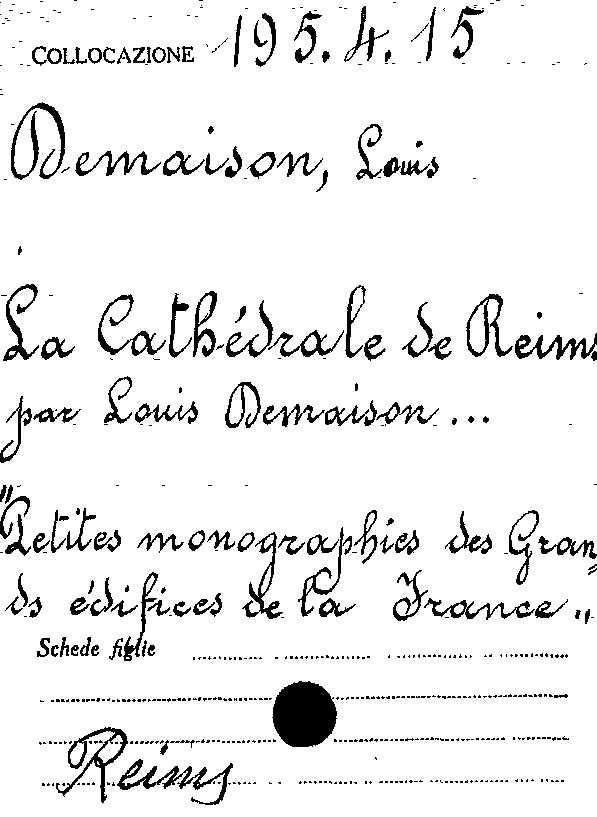 COLLOCAZIONE 195.4.15
Demaison, Louis
La Cathédrale de Reims
par Louis Demaison...
"Petites monographies des Gran=
ds édifices de la France„
Schede figlie
Reims